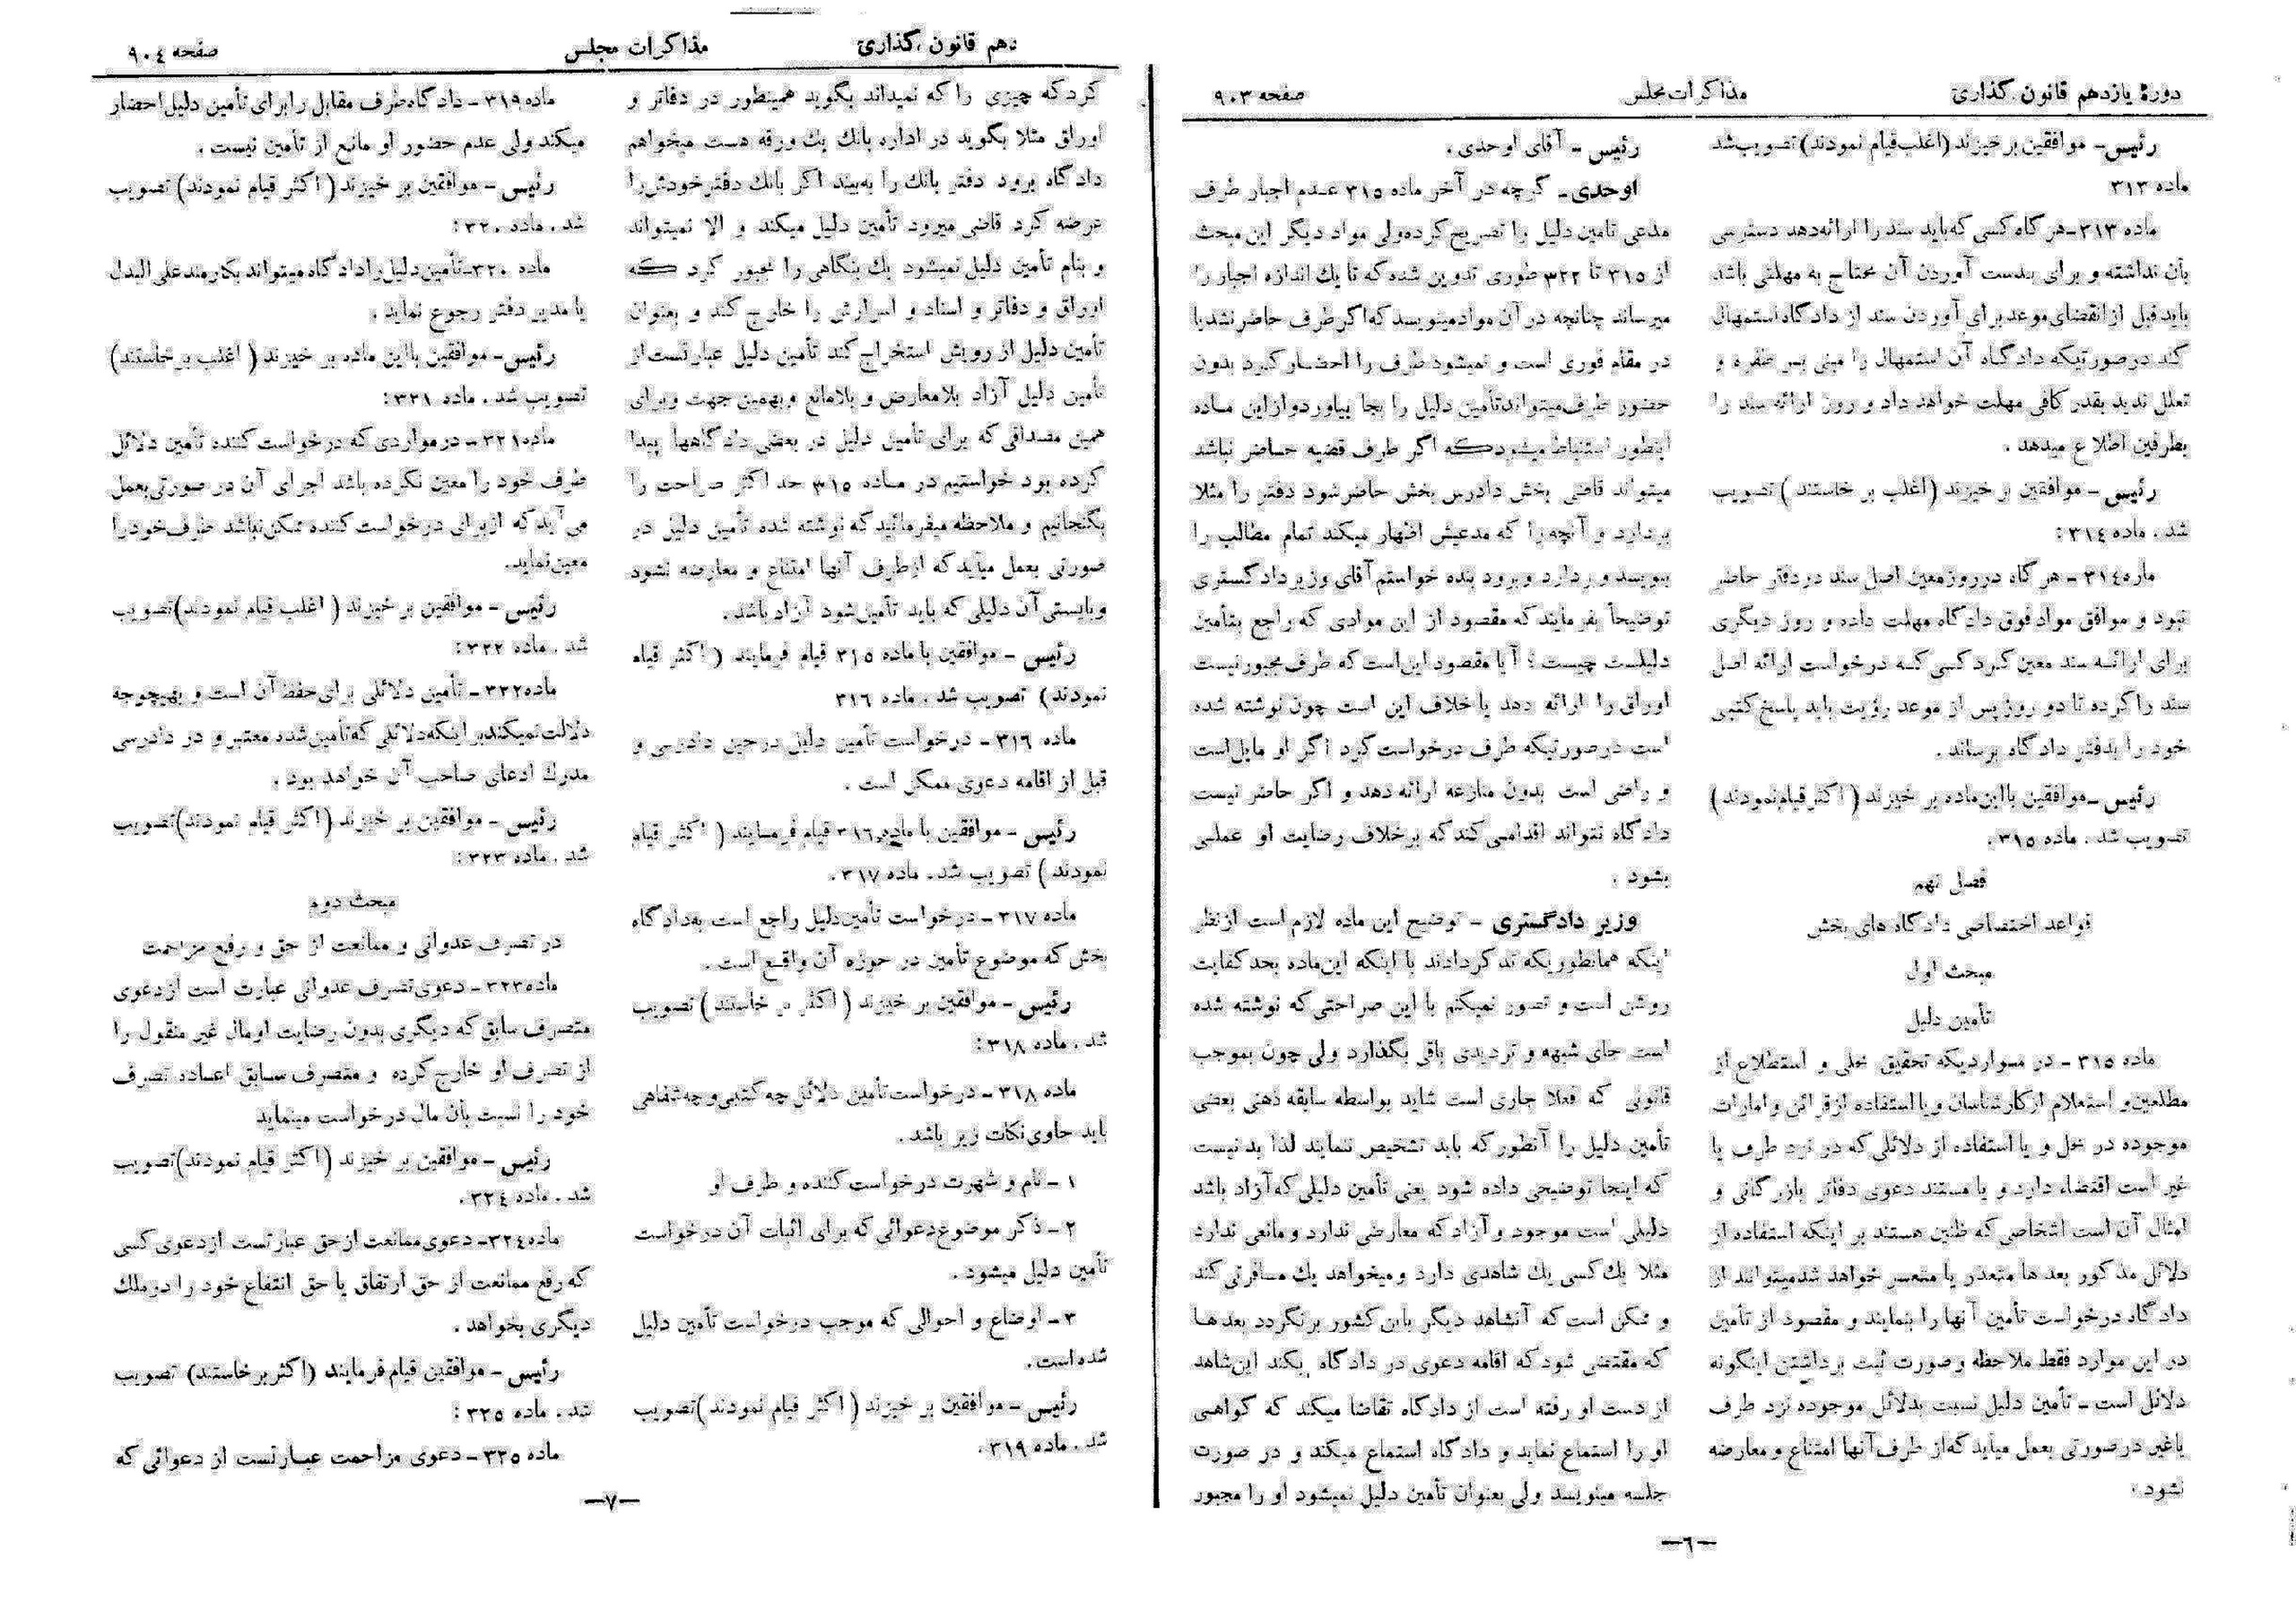 دورهٔ یازدهم قانون گذاری
مذاکرات مجلس
صفحه ۹۰۳
رئیس- موافقین برخیزند (اغلب قیام نمودند) تصویب شد
ماده ۳۱۳
ماده ۳۱۳-هرگاه کسی که باید سند را ارائه دهد دسترسی
بآن نداشته و برای بدست آوردن آن محتاج به مهلتی باشد
باید قبل از انقضای موعد برای آوردن سند از دادگاه استمهال
کند درصورتیکه دادگاه آن استمهال را مبنی بسر طفره و
تعلل ندید بقدر کافی مهلت خواهد داد و روز ارائه سند را
بطرفین اطلاع میدهد .
رئیس - موافقین برخیزند (اغلب برخاستند) تصویب
شد . ماده ۳۱۴ :
ماره ۳۱۴ - هرگاه درروز معین اصل سند دردفتر حاضر
نبود و موافق مواد فوق دادگاه مهلت داده و روز دیگری
برای ارائه سند معین کرد کسی که درخواست ارائه اصل
سند را کرده تا دو روز پس از موعد رؤیت باید پاسخ کتبی
خود را بدفتر دادگاه برساند .
رئیس -موافقین بااین ماده بر خیزند (اکثر قیام نمودند)
تصویب شد . ماده ۳۱۵ .
فصل نهم
قواعد اختصاصی دادگاه های بخش
مبحث اول
تأمین دلیل
ماده ۳۱۵ - در مواردیکه تحقیق محلی و استطلاع از
مطلعین و استعلام ازکارشناسان ویا استفاده ازقرائن و امارات
موجوده در محل و یا استفاده از دلائلی که در نزد طرف یا
غیر است اقتضاء دارد و یا مستند دعوی دفاتر بازرگانی و
امثال آن است اشخاصی که ظنین هستند بر اینکه استفاده از
دلائل مذکور بعد ها متعذر یا متعسر خواهد شد میتوانند از
دادگاه درخواست تأمین آنها را بنمایند و مقصود از تأمین
در این موارد فقط ملاحظه وصورت ثبت برداشتن اینگونه
دلائل است - تأمین دلیل نسبت بدلائل موجوده نزد طرف
یاغیر درصورتی بعمل میاید که از طرف آنها امتناع و معارضه
نشود .
رئیس - آقای اوحدی .
اوحدی- گرچه در آخر ماده ۳۱۵ عدم اجبار طرف
مدعی تامین دلیل را تصریح کرده ولی مواد دیگر این مبحث
از ۳۱۵ تا ۳۲۲ طوری تدوین شده که تا یك اندازه اجبار را
میرساند چنانچه در آن مواد مینویسد که اگر طرف حاضر نشد یا
در مقام فوری است و نمیشود طرف را احضار کرد بدون
حضور طرف میتواند تأمین دلیل را بجا بیاورد و ازاین ماده
اینطور استنباط میشود که اگر طرف قضیه حاضر نباشد
میتواند قاضی بخش دادرس بخش حاضر شود دفتر را مثلا
بردارد و آنچه را که مدعیش اظهار میکند تمام مطالب را
بنویسد و ردارد وبرود بنده خواستم آقای وزیر دادگستری
توضیحاً بفرمایند که مقصود از این موادی که راجع بتأمین
دلیلست چیست ؛ آیا مقصود این است که طرف مجبور نیست
اوراق را ارائه دهد یا خلاف این است چون نوشته شده
است درصورتیکه طرف درخواست کرد اگر او مایل است
و راضی است بدون منازعه ارائه دهد و اگر حاضر نیست
دادگاه نتواند اقدامی کند که برخلاف رضایت او عملی
بشود .
وزیر دادگستری - توضیح این ماده لازم است ازنظر
اینکه همانطوریکه تذکر دادند با اینکه این ماده بحد کفایت
روشن است و تصور نمیکنم با این صراحتی که نوشته شده
است جای شبهه و تردیدی باقی بگذارد ولی چون بموجب
قانونی که فعلا جاری است شاید بواسطه سابقه ذهنی بعضی
تأمین دلیل را آنطور که باید تشخیص ننمایند لذا بد نیست
که اینجا توضیحی داده شود یعنی تأمین دلیلی که آزاد باشد
دلیلی است موجود و آزاد که معارضی ندارد و مانعی ندارد
مثلا یك کسی یك شاهدی دارد و میخواهد یك مسافرتی کند
و ممکن است که آنشاهد دیگر باین کشور برنگردد بعدها
که مقتضی شود که اقامه دعوی در دادگاه بکند این شاهد
از دست او رفته است از دادگاه تقاضا میکند که گواهی
او را استماع نماید و دادگاه استماع میکند و در صورت
جلسه مینویسد ولی بعنوان تأمین دلیل نمیشود او را مجبور
—٦—
دهم قانون گذاری
مذاکرات مجلس
صفحه ۹۰٤
کرد که چیزی را که نمیداند بگوید همینطور در دفاتر و
اوراق مثلا بگوید در اداره بانك یك ورقه هست میخواهم
دادگاه برود دفتر بانك را به بیند اگر بانك دفتر خودش را
عرضه کرد قاضی میرود تأمین دلیل میکند و الا نمیتواند
و بنام تأمین دلیل نمیشود یك بنگاهی را مجبور کرد که
اوراق و دفاتر و اسناد و اسرارش را خارج کند و بعنوان
تأمین دلیل از رویش استخراج کند تأمین دلیل عبارتست از
تأمین دلیل آزاد بلا معارض و بلامانع و بهمین جهت وبرای
همین مصداقی که برای تأمین دلیل در بعضی دادگاهها پیدا
کرده بود خواستیم در ماده ۳۱۵ حد اکثر صراحت را
بگنجانیم و ملاحظه میفرمائید که نوشته شده تأمین دلیل در
صورتی بعمل میآید که ازطرف آنها امتناع و معارضه نشود
وبایستی آن دلیلی که باید تأمین شود آزاد باشد.
رئیس - موافقین با ماده ۳۱۵ قیام فرمایند ( اکثر قیام
نمودند) تصویب شد . ماده ۳۱٦
ماده ۳۱٦ - درخواست تأمین دلیل درحین دادرسی و
قبل از اقامه دعوی ممکن است .
رئیس - موافقین با ماده ۳۱٦ قیام فرمایند ( اکثر قیام
نمودند) تصویب شد. ماده ۳۱۷ .
ماده ۳۱۷ - درخواست تأمین دلیل راجع است به دادگاه
بخش که موضوع تأمین در حوزه آن واقع است .
رئیس - موافقین بر خیزند ( اکثر بر خاستند) تصویب
شد . ماده ۳۱۸ :
ماده ۳۱۸ - درخواست تأمین دلائل چه کتبی و چه شفاهی
باید حاوی نکات زیر باشد .
۱ - نام و شهرت درخواست کننده و طرف او
۲ - ذکر موضوع دعوائی که برای اثبات آن درخواست
تأمین دلیل میشود .
۳ - اوضاع و احوالی که موجب درخواست تأمین دلیل
شده است .
رئیس - موافقین بر خیزند (اکثر قیام نمودند) تصویب
شد . ماده ۳۱۹ .
ماده ۳۱۹ - دادگاه طرف مقابل را برای تأمین دلیل احضار
میکند ولی عدم حضور او مانع از تأمین نیست .
رئیس - موافقین بر خیزند ( اکثر قیام نمودند) تصویب
شد . ماده ۳۲۰ :
ماده ۳۲۰- تأمین دلیل را دادگاه میتواند بکارمند علی البدل
یا مدیر دفتر رجوع نماید .
رئیس - موافقین بااین ماده بر خیزند ( اغلب برخاستند)
تصویب شد . ماده ۳۲۱ :
ماده ۳۲۱ - درمواردی که درخواست کننده تأمین دلائل
طرف خود را معین نکرده باشد اجرای آن در صورتی بعمل
می آید که ازبرای درخواست کننده ممکن نباشد طرف خود را
معین نماید.
رئیس - موافقین بر خیزند ( اغلب قیام نمودند) تصویب
شد . ماده ۳۲۲ :
ماده ۳۲۲ - تأمین دلائلی برای حفظ آن است و بهیچوجه
دلالت نمیکند بر اینکه دلائلی که تأمین شده معتبر و در دادرسی
مدرك ادعای صاحب آن خواهد بود .
رئیس - موافقین بر خیزند (اکثر قیام نمودند) تصویب
شد . ماده ۳۲۳ :
مبحث دوم
در تصرف عدوانی و ممانعت از حق و رفع مزاحمت
ماده ۳۲۳ - دعوی تصرف عدوانی عبارت است از دعوی
متصرف سابق که دیگری بدون رضایت او مال غیر منقول را
از تصرف او خارج کرده و متصرف سابق اعاده تصرف
خود را نسبت بآن مال درخواست مینماید
رئیس - موافقین بر خیزند (اکثر قیام نمودند) تصویب
شد . ماده ۳۲٤ .
ماده ۳۲٤- دعوی ممانعت ازحق عبارتست ازدعوی کسی
که رفع ممانعت از حق ارتفاق یا حق انتفاع خود را در ملك
دیگری بخواهد .
رئیس - موافقین قیام فرمایند (اکثر برخاستند) تصویب
شد . ماده ۳۲۵ :
ماده ۳۲۵ - دعوی مزاحمت عبارتست از دعوائی که
—۷—